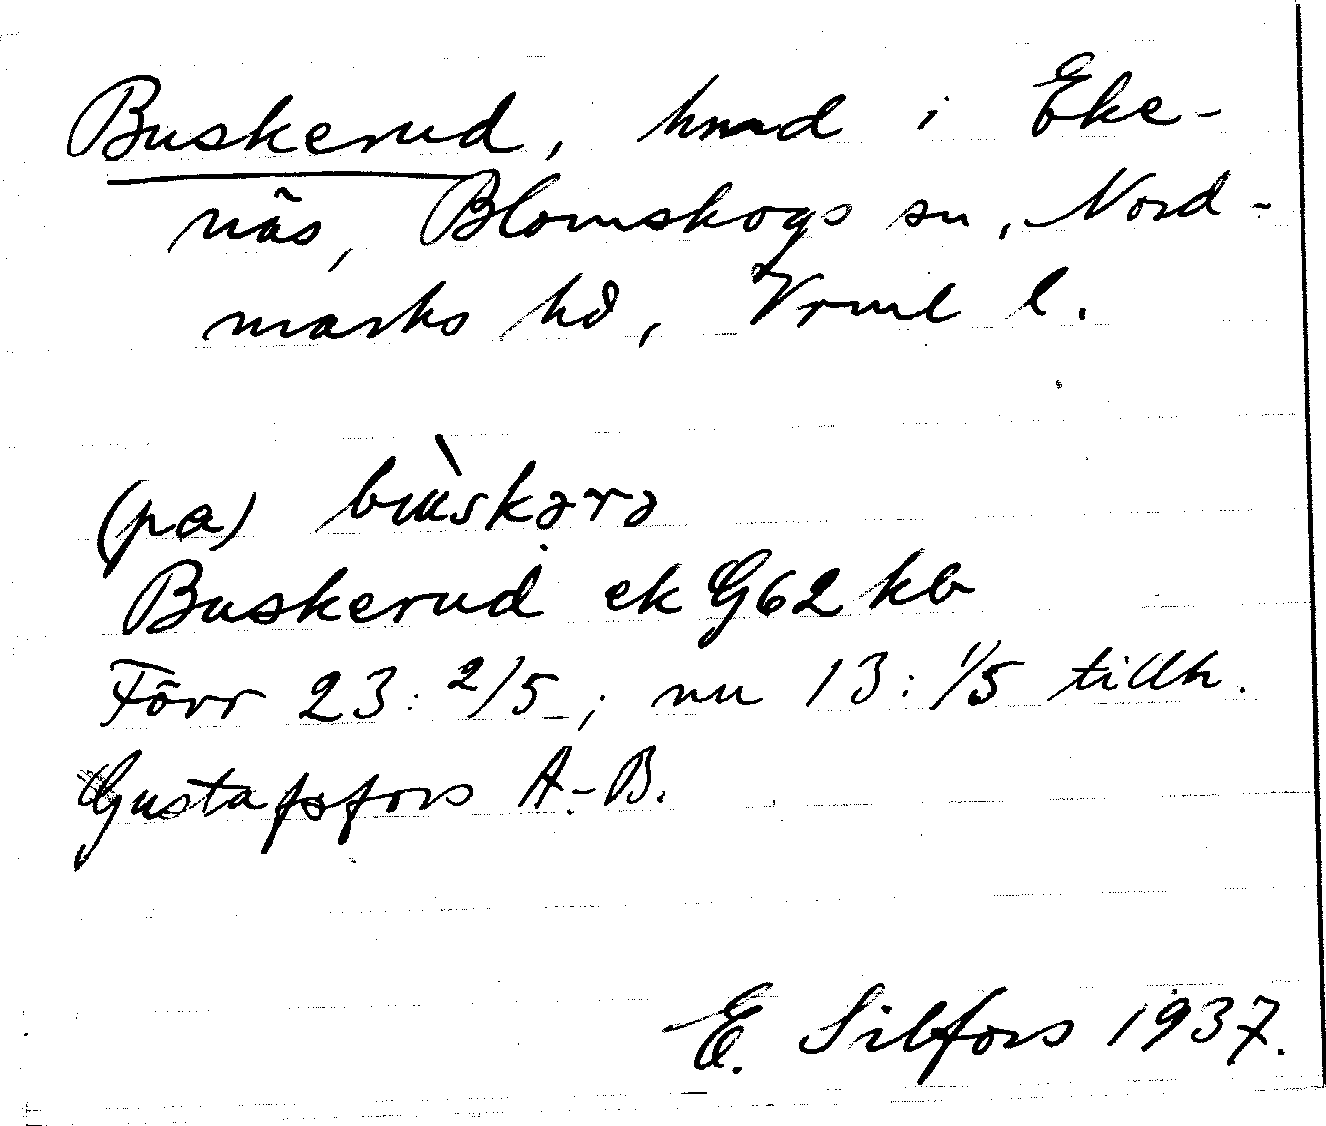 Buskerud, hmd i Eke-
näs, Blomskogs sn, Nord-
marks hd, Vrml l.
(pa) bùskərə
Buskerud ek G62 kb
Förr 23: 2/5; nu 13: 1/5 tillh.
Gustafsfors A.-B.
E. Silfors 1937.